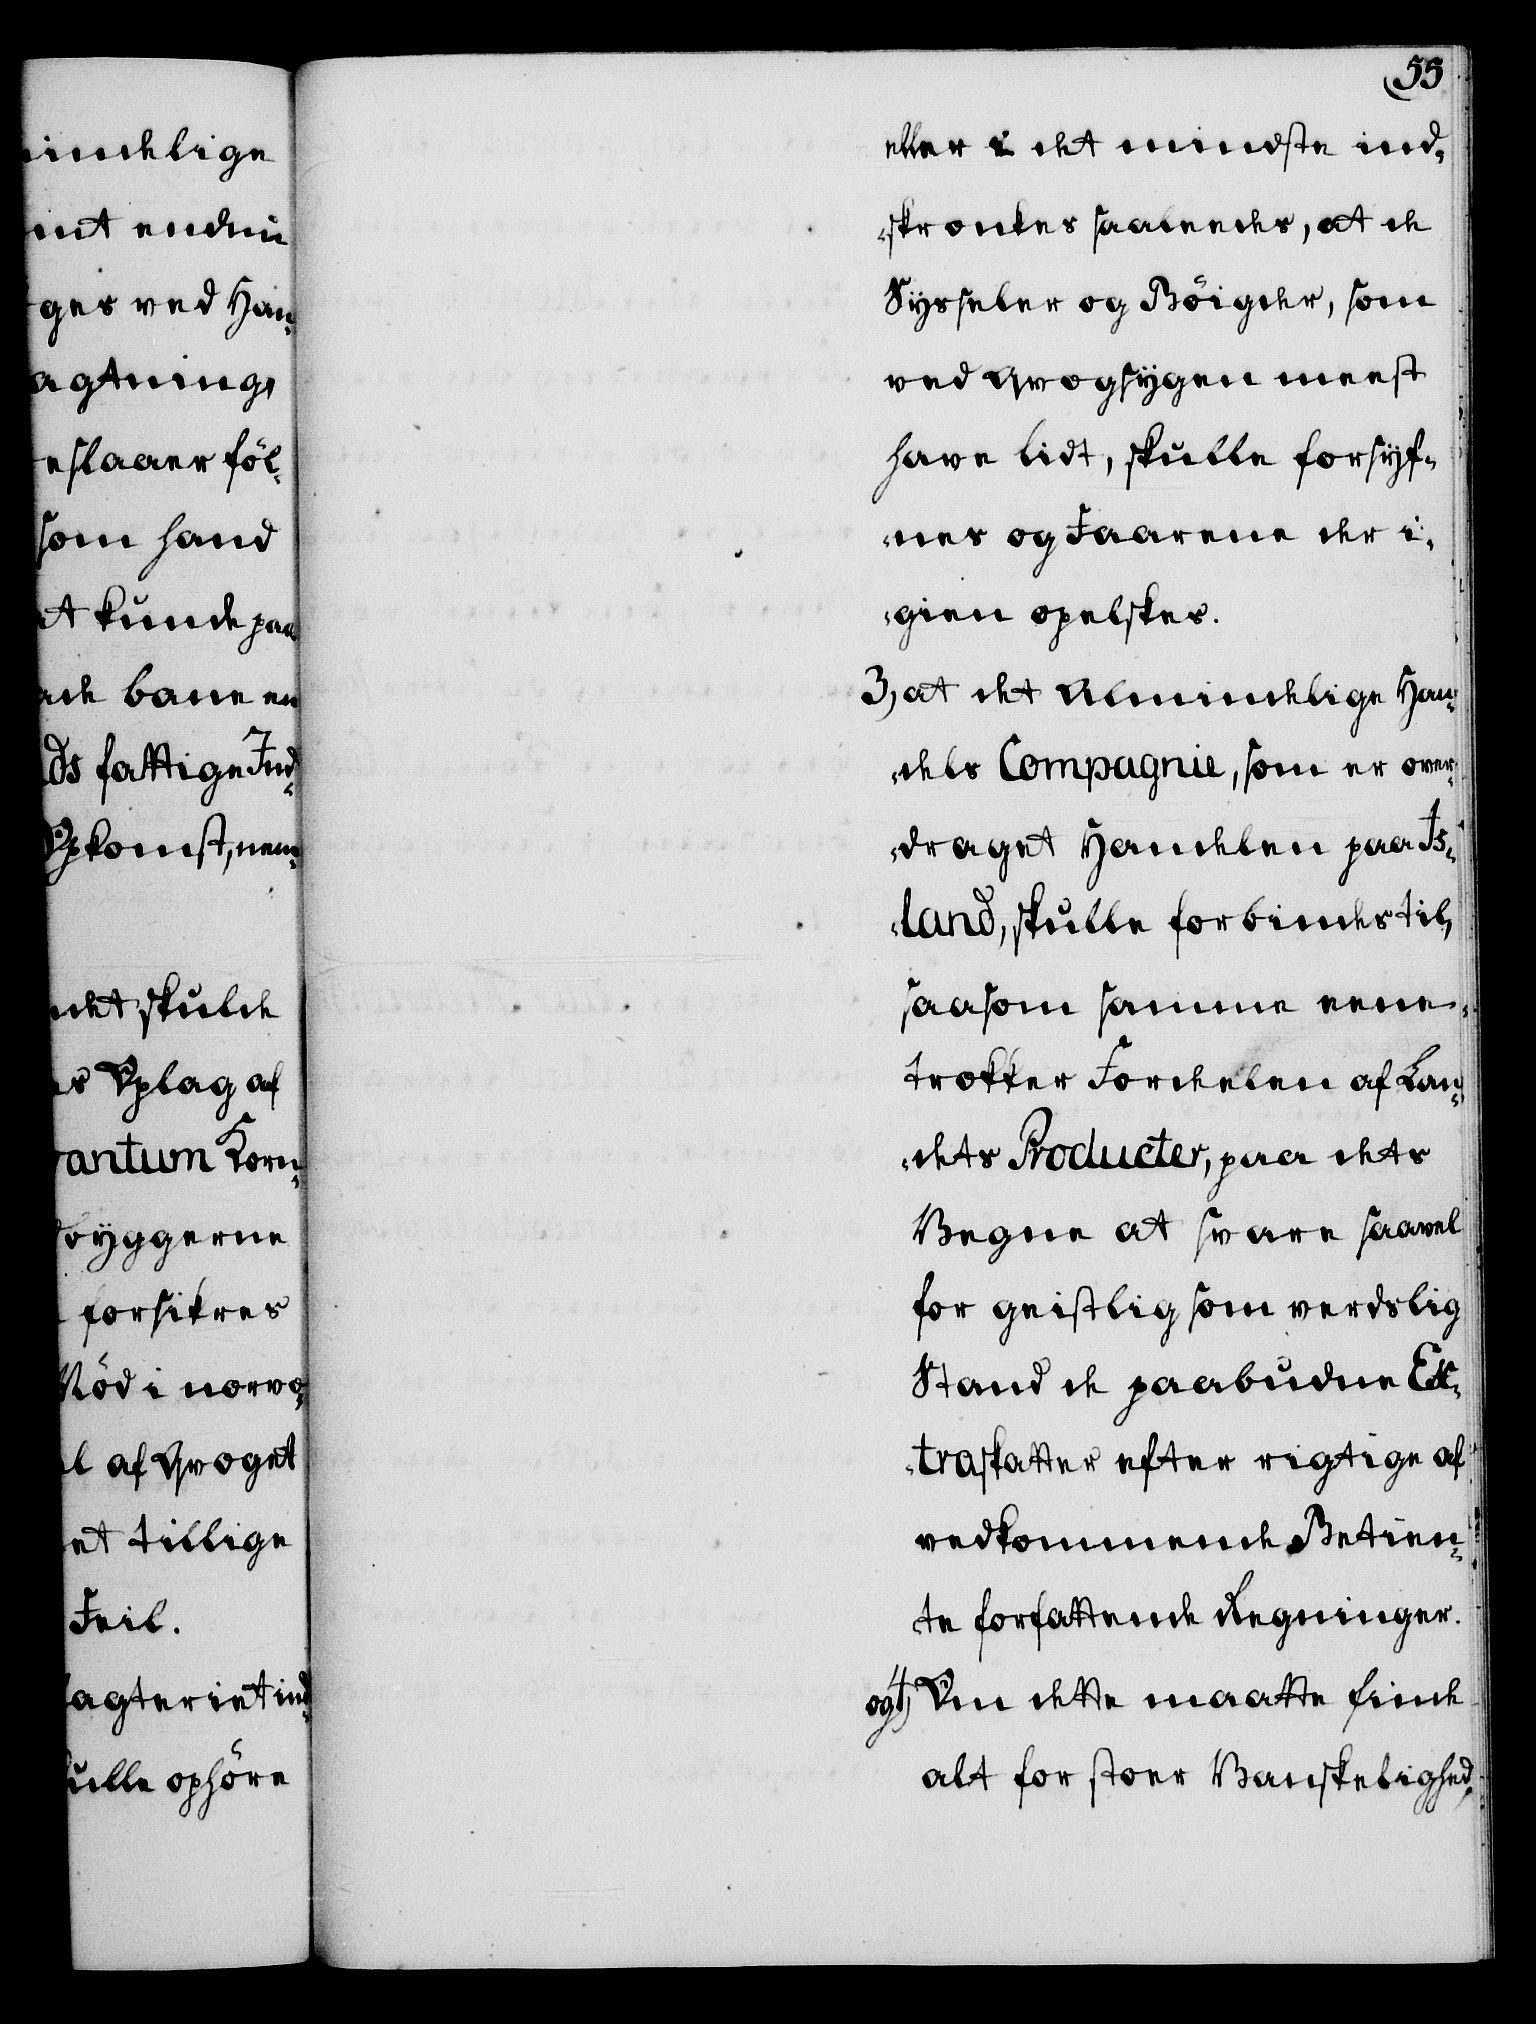 indelige
mt endnu
ges ved Han-
agtning,
eslaaer föl-
som hand
at kunde paa
ade bane en
ds fattige Ind-
Opkomst, nem-
det skulde
es Oplag af
antum Korn-
byggerne
forsikres
Nöd i nærvæ-
l af Qvæget
et tillige
Feil.
agteriet ind-
ulle ophöre
55
eller i det mindste ind-
-skrænkes saaledes, at de
Sysseler og Böigder, som
ved Qvægsygen meest
have lidt, skulle forsyf-
-nes og Faarene der i-
-gien opelskes.
3, at det Almindelige Han-
-dels Compagnie, som er over-
-draget Handelen paa Is-
-land, skulle forbindes til,
saasom samme eene
trækker Fordelen af Lan-
-dets Producter, paa dets
Vegne at svare saavel
for geistlig som verdslig
Stand de paabudne Ex-
-traskatter efter rigtige af
vedkommende Betien-
-te forfattende Regninger.
og 4, Om dette maatte finde
alt for stoer Vanskelighed,